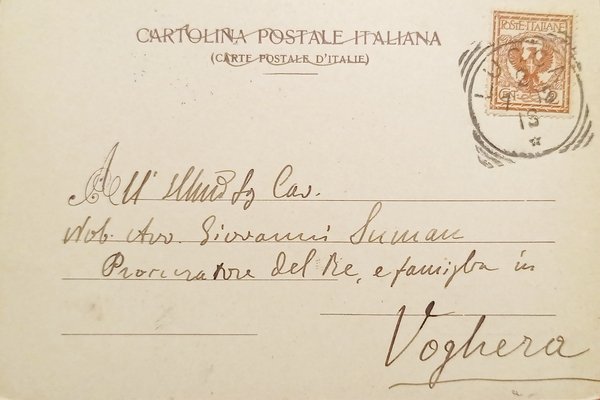 CARTOLINA POSTALE ITALIANA
(CARTE POSTALE D'ITALIE)
POSTE ITALIANE
All' Cav.
Nob. Avv. Giovanni Suman
Procuratore del Re, e famiglia in
Voghera